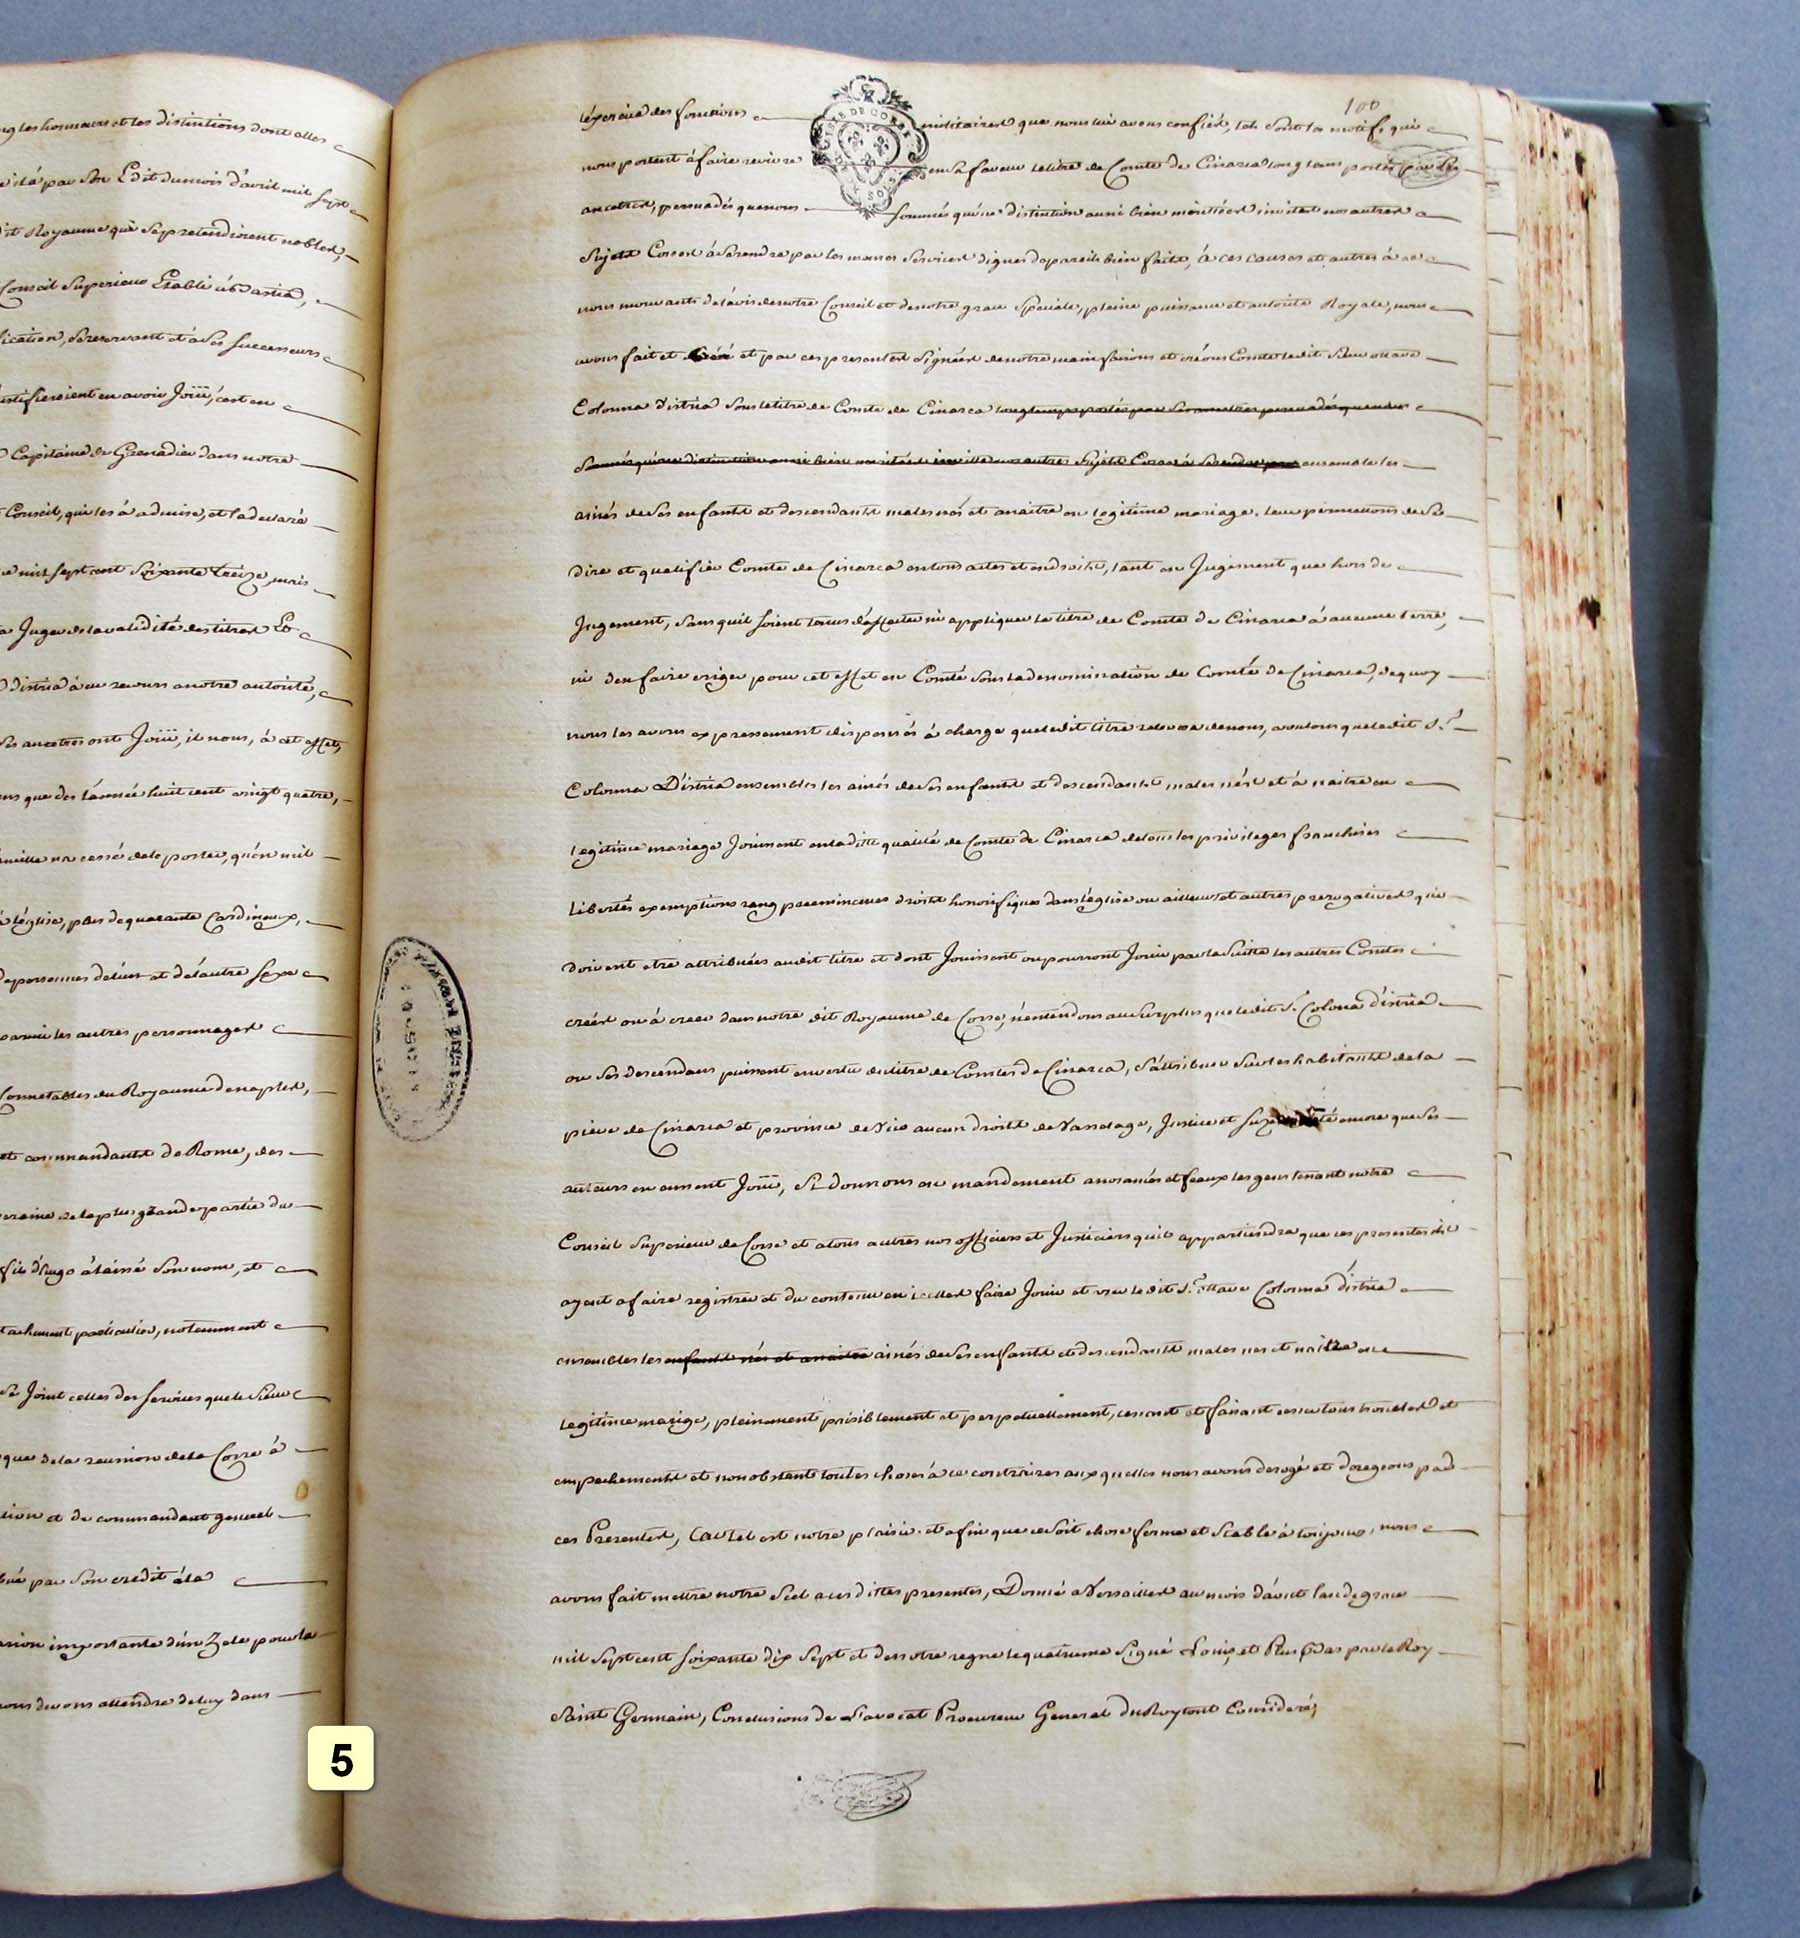 ng les honneurs et les distinctions dont elles
par Son Edit du mois d'avril mil Sept
dit Royaume qui Se pretendroient nobles,
Conseil Superieur Etabli à Bastia,
Se reservant et à Ses Successeurs
justifieroient en avoir Joüi, c'est en
Capitaine de Grenadier dans notre
Conseil, qui les à admise, et la declaré
mil Sept cent Soixante treize, mais
Juger de la validité des titres Et
d'istria à eu recours a notre autorité,
Ses ancetres ont Joüi, il nous, à cet effet,
ans que des l'année huit cent vingt quatre,
famille na cessé de le porter, qu'en mil
à l'église, plus de quarante Cardineaux,
de personnes de l'un et de l'autre Sexe
parmi les autres personnages
Connetables du Royaume de naples,
et commandants de Rome, des
de la plus grande partie du
fils d'hugo à laissé Son nom, et
attachement particulier, notamment
Joint celles des Services que le Sieur
que de la reunion de la Corse à
et de commandant general
par Son credit à la
importante d'un Zele pour la
nous devons attendre de luy dans
100
l'éxercice des fonctions militaires que nous lui avons confiés, tels Sont les motifs qui
nous portent à faire revivre en Sa faveur le titre de Comte de Cinarca long tems portés par Ses
ancetres, persuadés que nous sommes qu'une distinction aussi bien meritées invitera nos autres
Sujets Corses à Se rendre par les memes Services dignes de pareils bien faits, à ces causes et autres à ce
nous mouvants de l'avis de notre Conseil et de notre grace Speciale, pleine puissance et autorité Royale, nous
avons fait et créé et par ces presentes Signées de notre main faisons et créons Comte le dit Sieur ottave
Colonna d'istria Sous le titre de Comte de Cinarca longtemps portés par Ses ancetres persuadés que nous
Sommes qu'une distinction aussi bien meritée invitera nos autres Sujets Corses à Se rendre par ensemble les
ainés de Ses enfants et descendants males nés et a naitre en legitime mariage. leur permettons de Se
dire et qualifier Comte de Cinarca en tous actes et endroits, tant en Jugement que hors de
Jugement, Sans quil soient tenus d'affecter ni appliquer le titre de Comte de Cinarca à aucune terre,
ni den faire eriger pour cet effet en Comté Sous la denomination de Comté de Cinarca, de quoy
nous les avons expressement dispensés à charge que ledit titre relevera de nous, voulons que ledit S.r
Colonna D'istria ensembles les ainés de Ses enfants et descendants males nés et à naitre en
legitime mariage Jouissent en la ditte qualité de Comte de Cinarca de tous les privileges franchises
libertés exemptions rang preeminences droits honorifiques dans l'eglise ou ailleurs et autres prerogatives qui
doivent etre attribuées audit titre et dont Jouissent ou pourront Jouir par la Suitte les autres Comtes
créés ou à creer dans notre dit Royaume de Corse, n'entendons au Surplus que ledit S.r Colona d'istria
ou Ses descendans puissent en vertu du titre de Comtes de Cinarca, S'attribuer Sur les habitants de la
pieve de Cinarca et province de Vico aucun droits de Vasselage, Justice et encore que Ses
auteurs en eussent Joüi, Si Donnons en mandement a nos amés et feaux les gens tenant notre
Conseil Superieur de Corse et a tous autres nos officiers et Justiciers quil appartiendra que ces presentes ils
ayent a faire registrer et du contenu en icelles faire Jouir et user le dit S.r ottave Colonna d'istria
ensembles les enfants nés et a naitre ainés de Ses enfants et descendants males nes et naitre en
legitime mariage, pleinement paisiblement et perpetuellement, cessant et faisant cesser tous troubles et
empechements et nonobstant toutes choses à ce contraires aux quelles nous avons derogé et derogeons par
ces Presentes, Car tel est notre plaisir. et afin que ce Soit chose ferme et Stable à toujours, nous
avons fait mettre notre Scel a ces dittes presentes, Donné a Versailles au mois d'aout l'an de grace
mil Sept cent soixante dix Sept et de notre regne le quatrieme Signé Louis, et Plus Bas par le Roy
Saint Germain, Conclusions de L'avocat Procureur General du Roy tout Consideré,
5